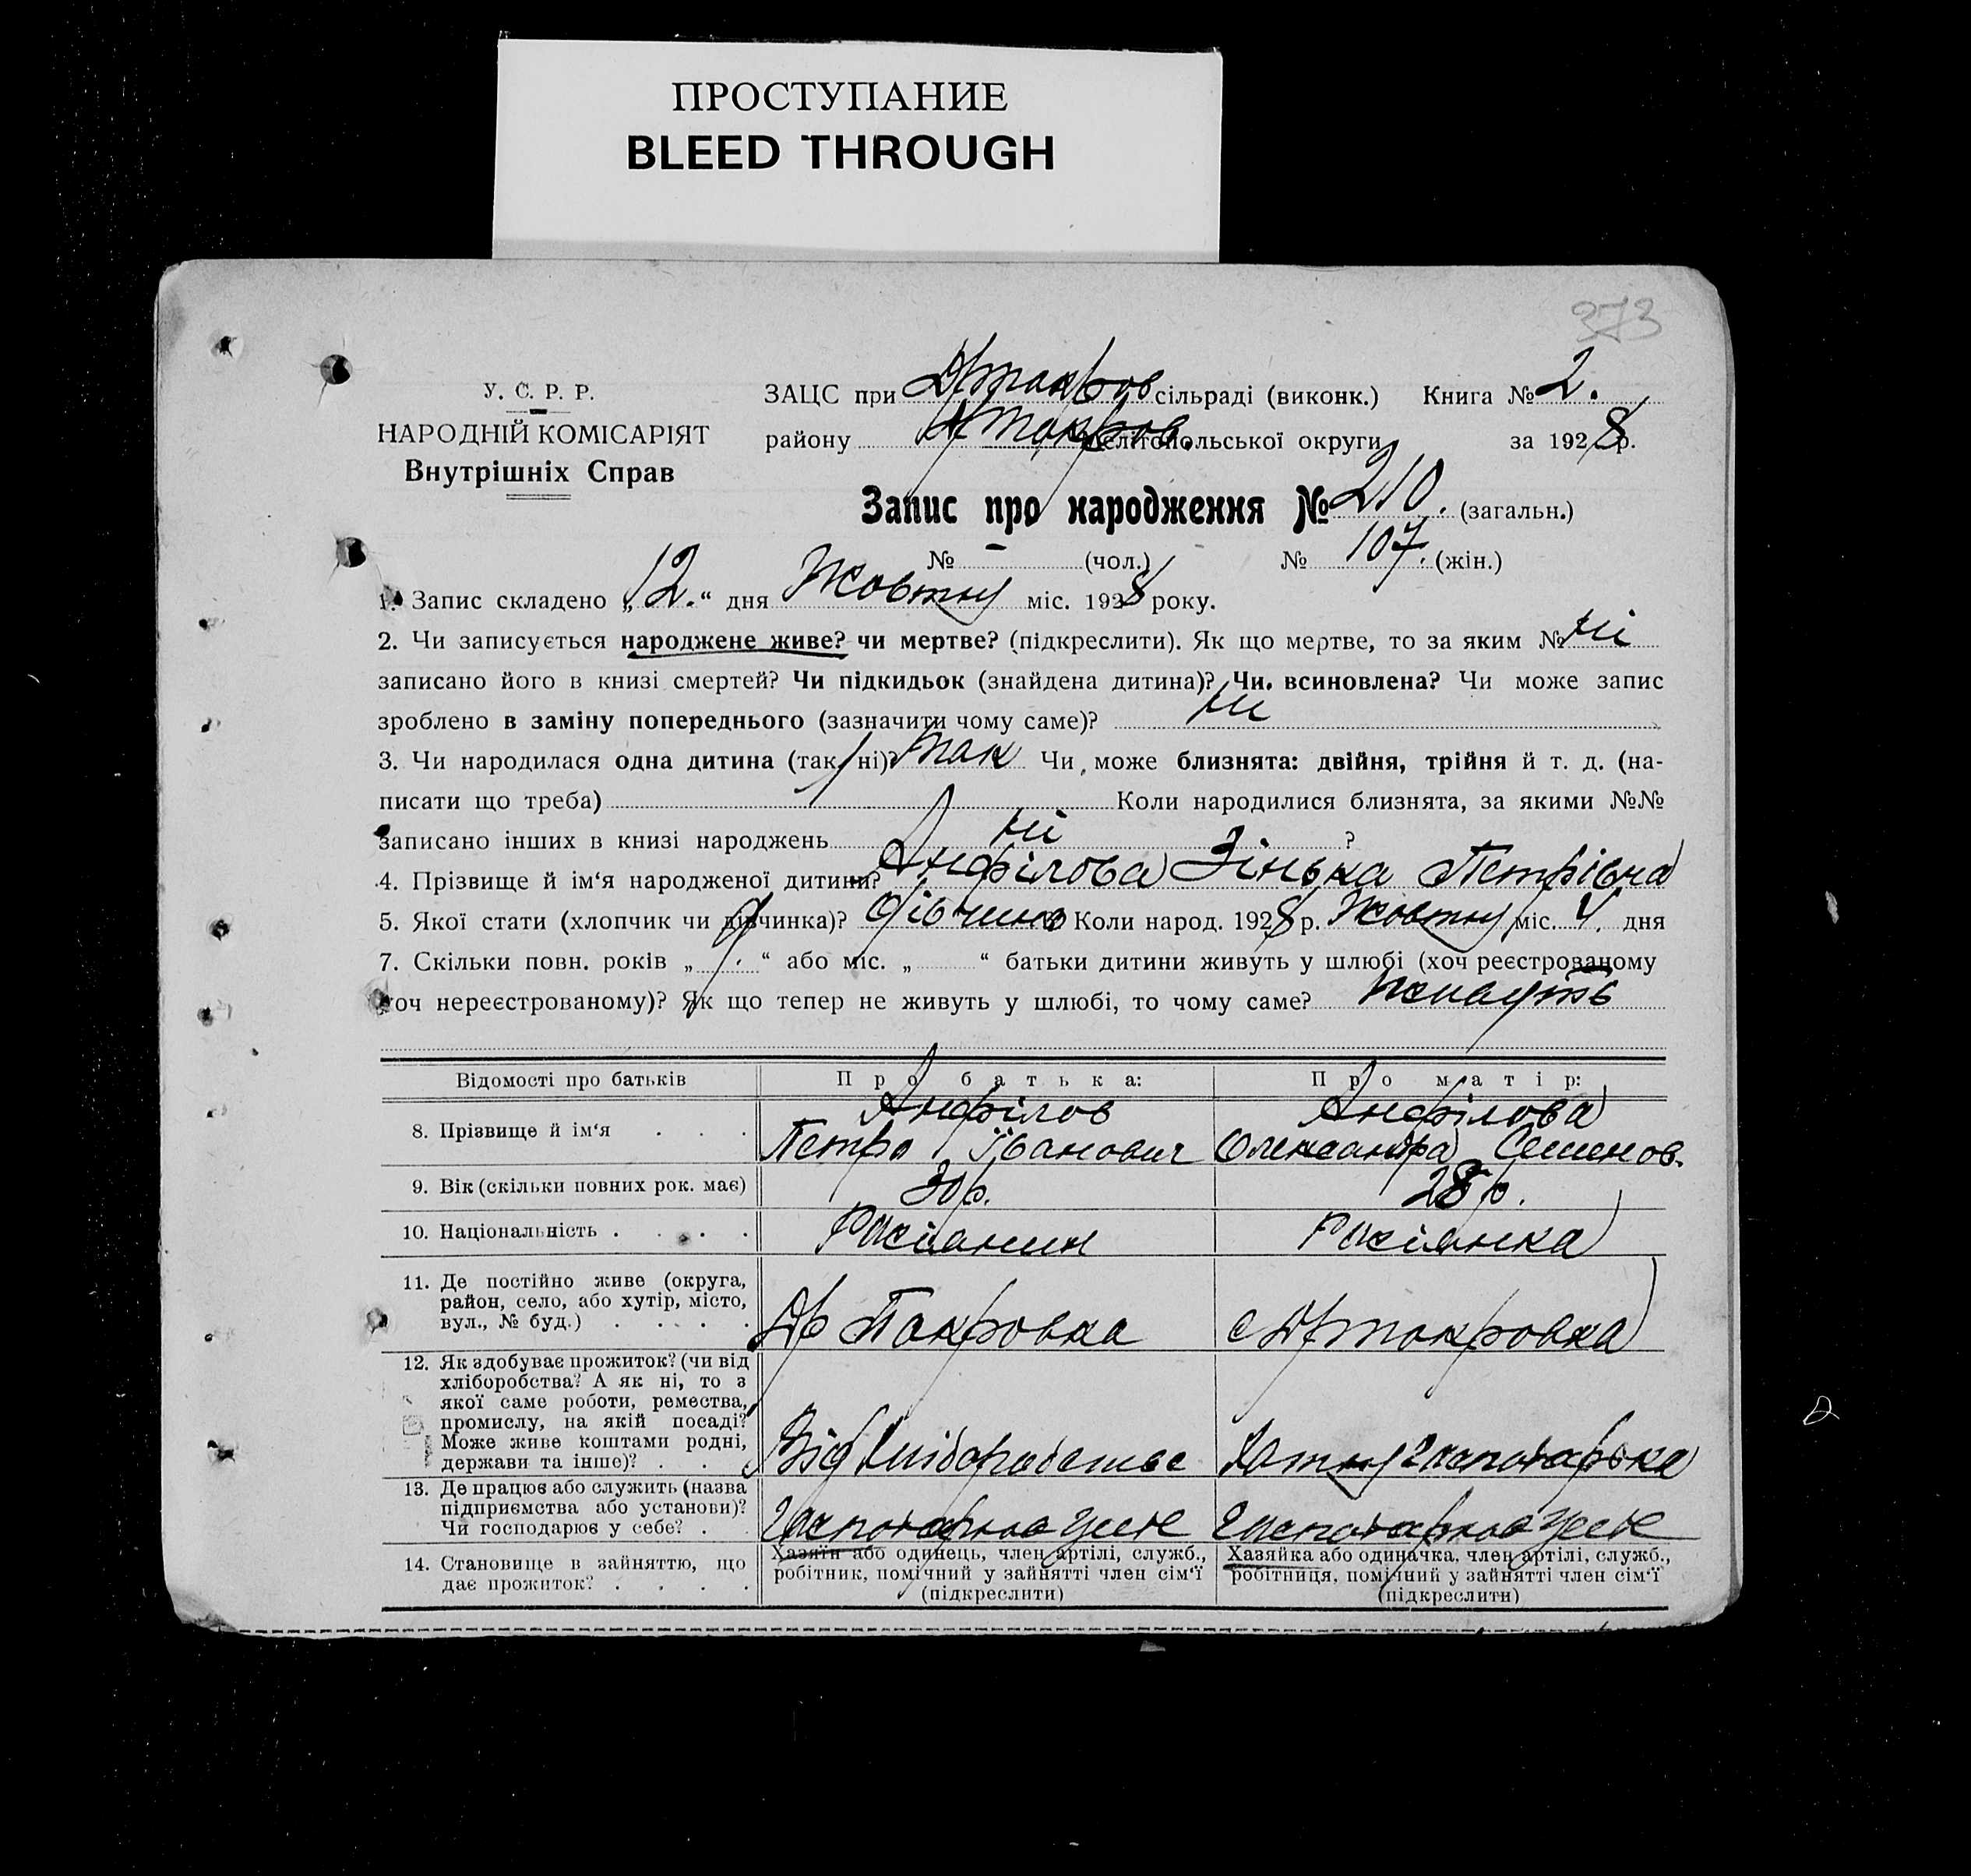 ПРОСТУПАНИЕ
BLEED THROUGH
373
У. С. Р. Р.
НАРОДНІЙ КОМІСАРІЯТ
Внутрішніх Справ
ЗАЦС при сільраді (виконк.) Книга № 2.
району Мелітопольської округи за 1928 р.
Запис про народження № 210. (загальн.)
№ (чол.) № 107. (жін.)
1. Запис складено „12.“ дня Жовтня міс. 1928 року.
2. Чи записується народжене живе? чи мертве? (підкреслити). Як що мертве, то за яким № ні
записано його в книзі смертей? Чи підкидьок (знайдена дитина)? Чи всиновлена? Чи може запис
зроблено в заміну попереднього (зазначити чому саме)? ні
3. Чи народилася одна дитина (так, ні)? так Чи може близнята: двійня, трійня й т. д. (на-
писати що треба) Коли народилися близнята, за якими №№
записано інших в книзі народжень ні ?
4. Прізвище й ім‘я народженої дитини? Анфілова Зінька Петрівна
5. Якої стати (хлопчик чи дівчинка)? дівчина Коли народ. 1928 р. Жовтня міс. 4. дня
7. Скільки повн. років „ “ або міс. „ “ батьки дитини живуть у шлюбі (хоч реєстрованому
хоч нереєстрованому)? Як що тепер не живуть у шлюбі, то чому саме?
Відомості про батьків Про батька: Про матір:
8. Прізвище й ім‘я . . . Анфілов Петро Іванович Анфілова Олександра Семенов.
9. Вік (скільки повних рок. має) 30 р. 28 р.
10. Національність . . . . Расіанин Расіанка
11. Де постійно живе (округа,
район, село, або хутір, місто,
вул., № буд.) . . . . Др Пакровка с Дрпакровка
12. Як здобуває прожиток? (чи від
хліборобства? А як ні, то з
якої саме роботи, ремества,
промислу, на якій посаді?
Може живе коштами родні,
держави та інше)? . . Від
13. Де працює або служить (назва
підприємства або установи)?
Чи господарює у себе? . .
14. Становище в зайняттю, що
дає прожиток? . . . .
Хазяїн або одинець, член артілі, служб.,
робітник, помічний у зайнятті член сім‘ї
(підкреслити)
Хазяйка або одиначка, член артілі, служб.,
робітниця, помічний у зайнятті член сім‘ї
(підкреслити)